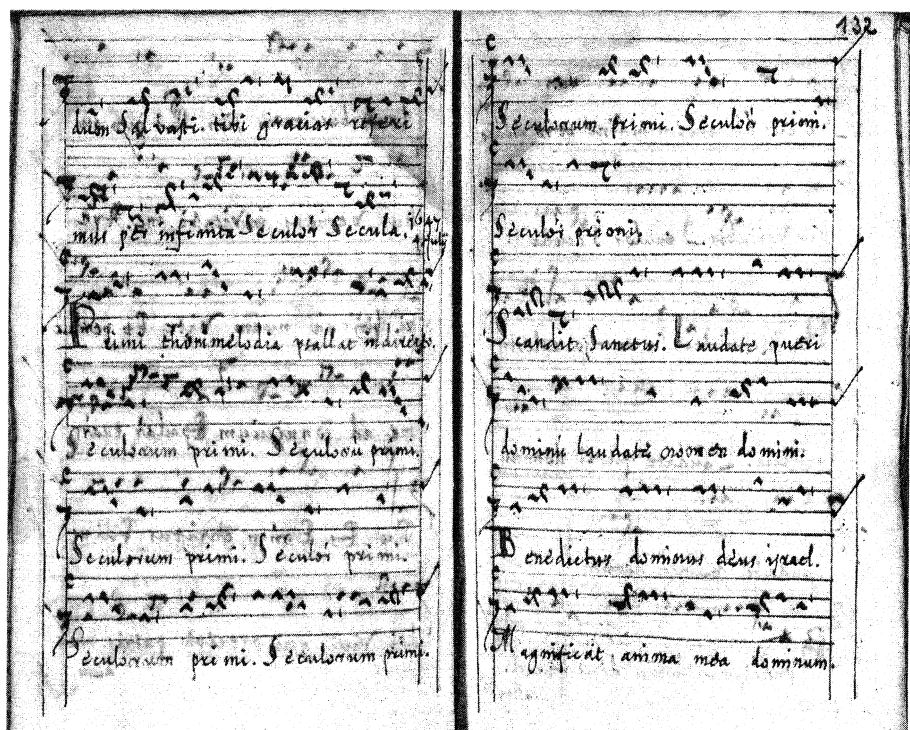 dum Salvasti. tibi gracias referi
mus per infinita Seculor Secula. 1647
Primi thom melodia psallat in directo.
Seculorum primi. Seculoru primi.
Seculorum primi. Seculor primi.
Seculorum primi. Seculorum primi.
132
Seculorum primi. Seculor primi.
Seculor primi.
Scandit Sanctus. Laudate pueri
dominu laudate nomen domini.
Benedictus dominus deus israel.
Magnificat anima mea dominum.